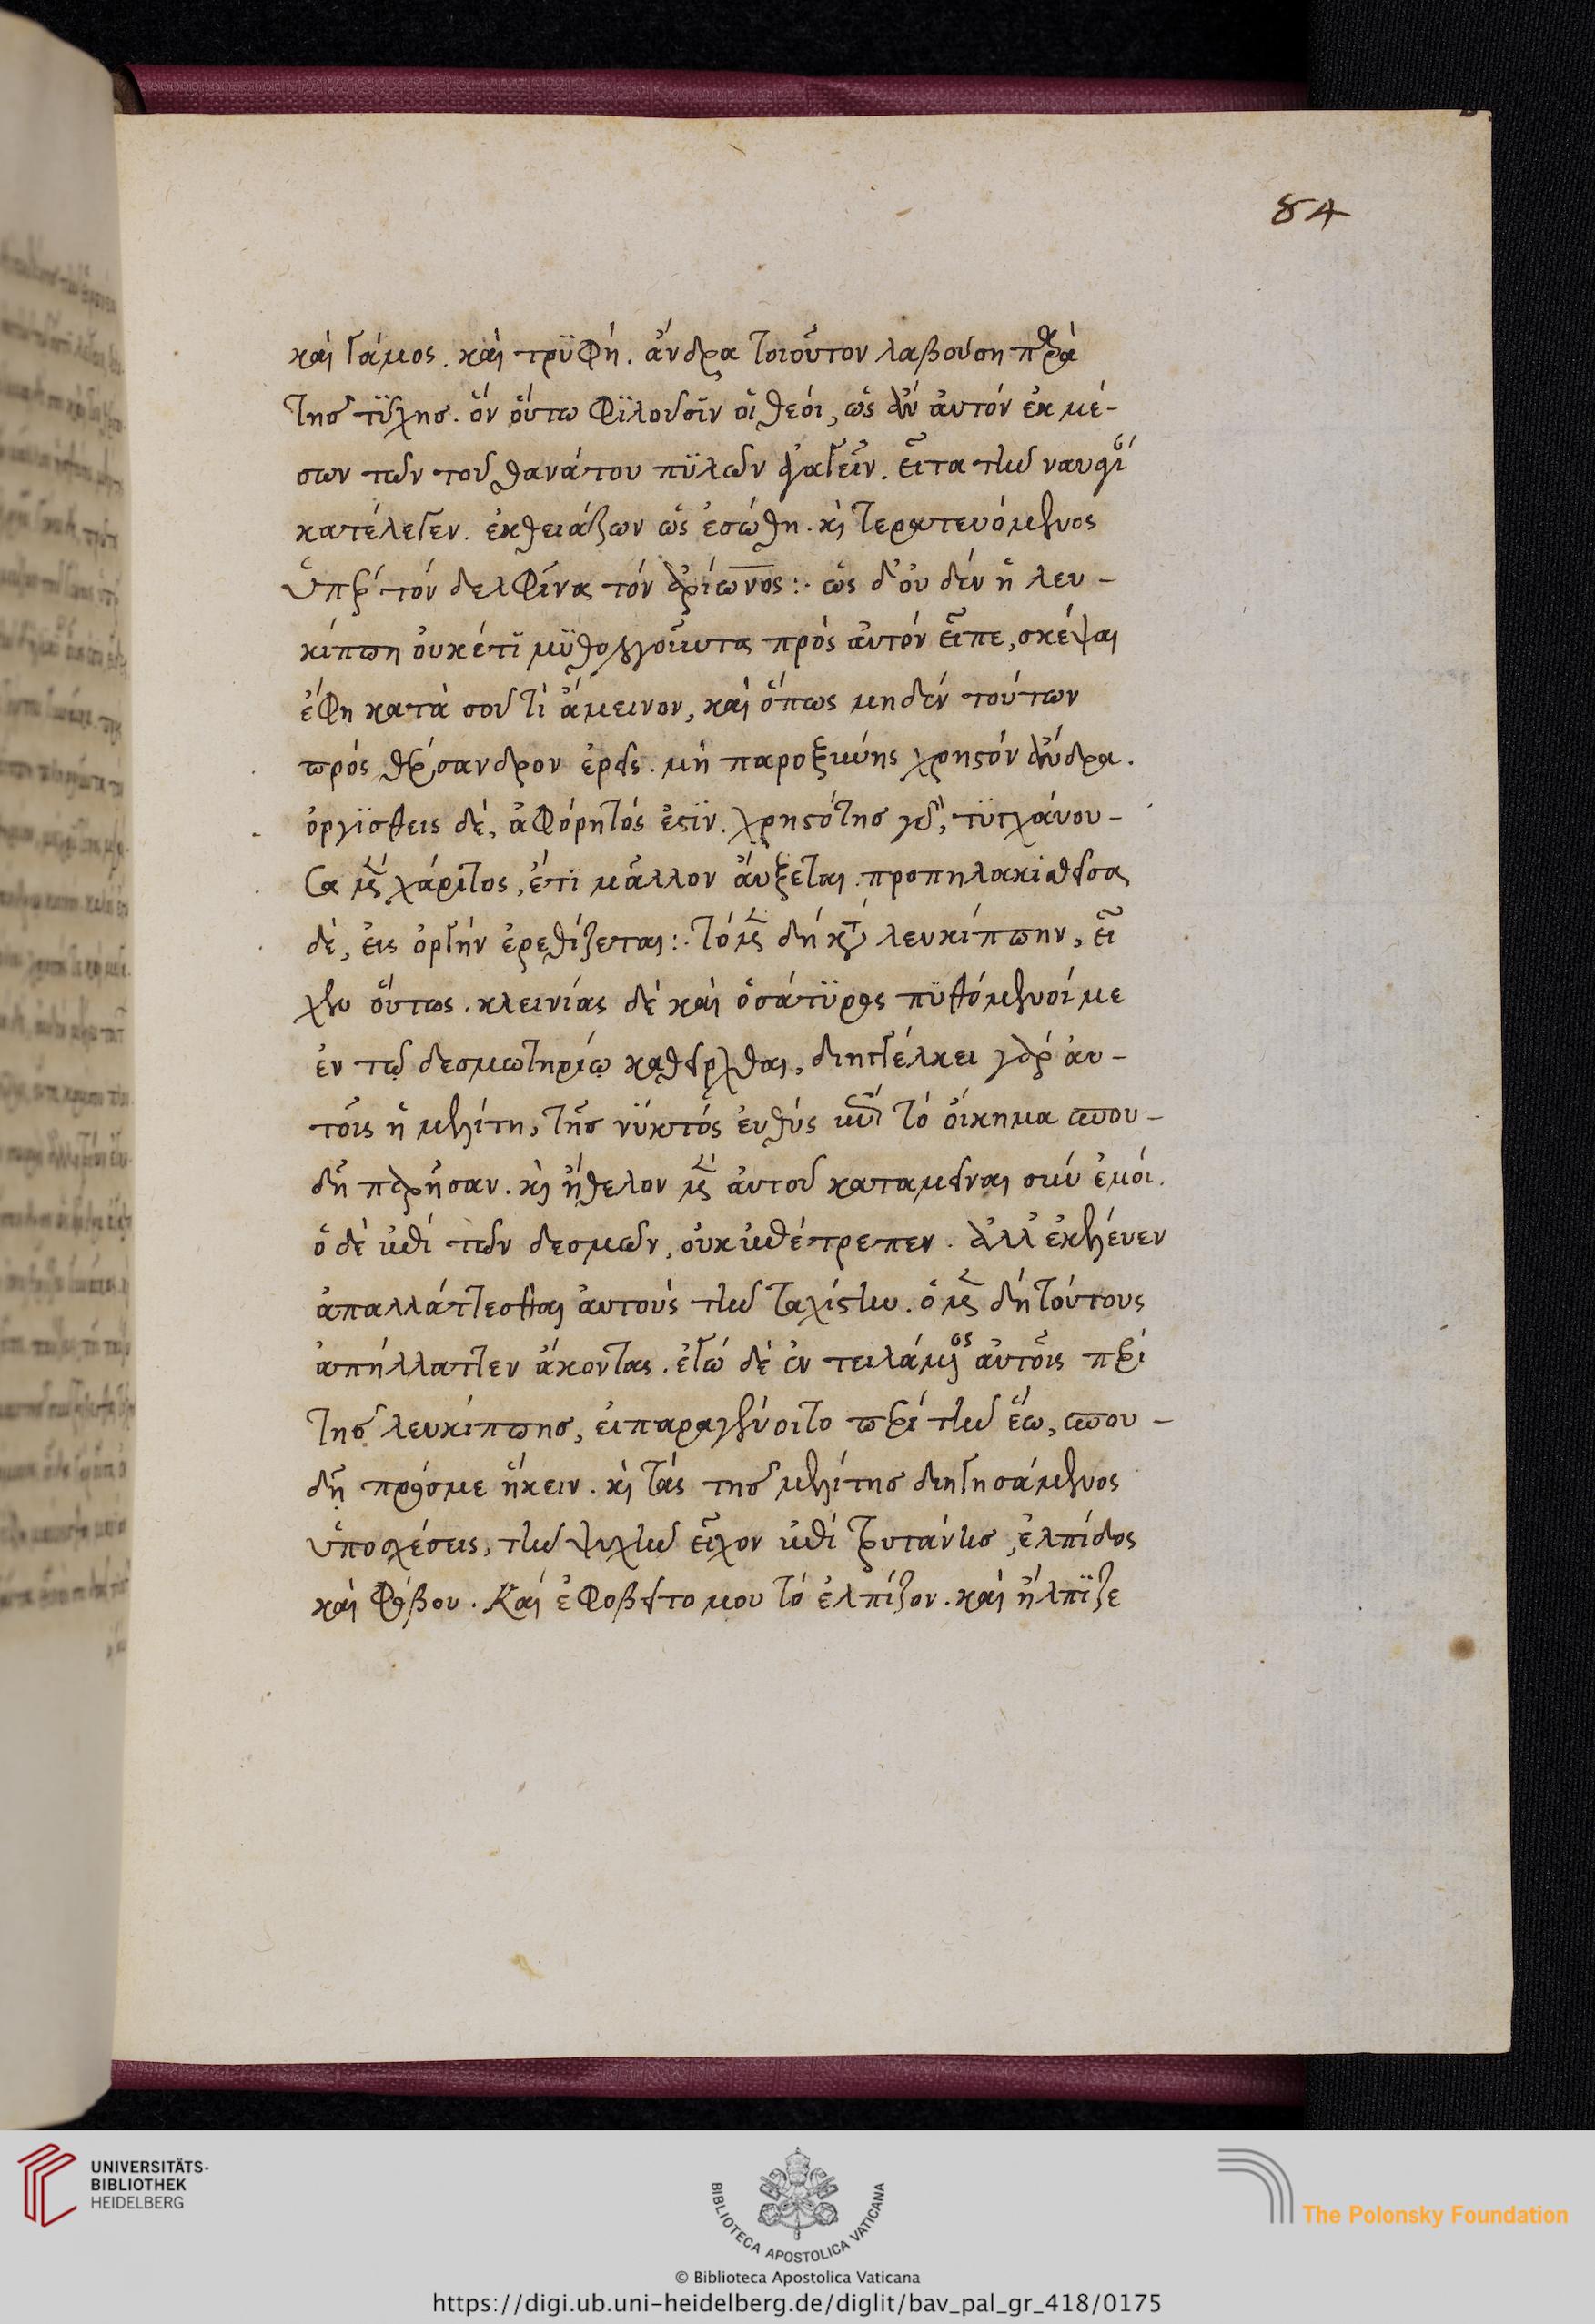 84
καὶ γάμος. καὶ τρϋφή. ἄνδρα τοιοῦτον λαβούση παρὰ
τῆσ τΰχησ. ὃν οὕτω φϊλοῦσϊν οἱ θεόι, ὡς ἂν ἀυτόν ἐκ μέ-
σων τῶν τοῦ θανάτου πϋλῶν ἐξαγεῖν. εἶτα τὴν ναυαγί
κατέλεγεν. ἐκθειάζων ὡς ἐσώθη. κὶ τερατευόμενος
ὑπὲρ τόν δελφίνα τόν ἀρίωνος:· ὡς δ' ὀυδέν ἡ λευ-
κίππη ὀυκέτϊ μϋθολογοῦντα πρὸς ἀυτόν εἶπε, σκέψαι
ἔφη κατὰ σοῦ τὶ ἄμεινον, καὶ ὅπως μηδέν τούτων
πρός θέρσανδρον ἐρεῖς. μὴ παροξυνης χρηστόν ἄνδρα.
ὀργϊσθεις δὲ, ἀφόρητός ἐστϊν. χρηστότησ γὰρ, τϋγχάνου-
σα μὲν χάριτος, ἔτϊ μᾶλλον ἄυξεται. προπηλακισθεῖσα
δὲ, ἐις ὀργήν ἐρεθίζεται:· τὸ μὲν δὴ κατὰ λευκίππην, εἶ
χεν οὕτως. κλεινίας δὲ καὶ ὁ σάτϋρος πϋθόμενοί με
ἐν τῷ δεσμωτηρίῳ καθεῖρχθαι, διηγγέλκει γὰρ ἀυ-
τοῖς ἡ μελίτη, τῆσ νϋκτός ἐυθύς ἐπὶ τό ὄικημα σπου-
δῆ παρῆσαν. κὶ ἤθελον μὲν ἀυτοῦ καταμεῖναι σύν ἐμόι.
ὁ δὲ ἐπί τῶν δεσμῶν, ὀυκ ἐπέτρεπεν. ἀλλ' ἐκέλευεν
ἀπαλλάττεσθαι ἀυτοὺς τὴν ταχίστην. ὁ μὲν δὴ τόυτους
ἀπήλλαττεν ἄκοντας. ἐγώ δὲ ἐντειλάμενος ἀυτοῖς περί
τῆσ λευκίππησ, ἐι παραγένοιτο περί τὴν ἕω, σπου-
δῆ πρόσμε ἥκειν. κὶ τάς τῆσ μελίτησ διηγησάμενος
ὑποσχέσεις, τὴν ψυχὴν εἶχον ἐπί τρυτάνησ, ἐλπίδος
καὶ φόβου. Καὶ ἐφοβεῖτο μου τό ἐλπίζον. καὶ ἤλπϊζε
UNIVERSITÄTS-
BIBLIOTHEK
HEIDELBERG
BIBLIOTECA APOSTOLICA VATICANA
The Polonsky Foundation
© Biblioteca Apostolica Vaticana
https://digi.ub.uni-heidelberg.de/diglit/bav_pal_gr_418/0175